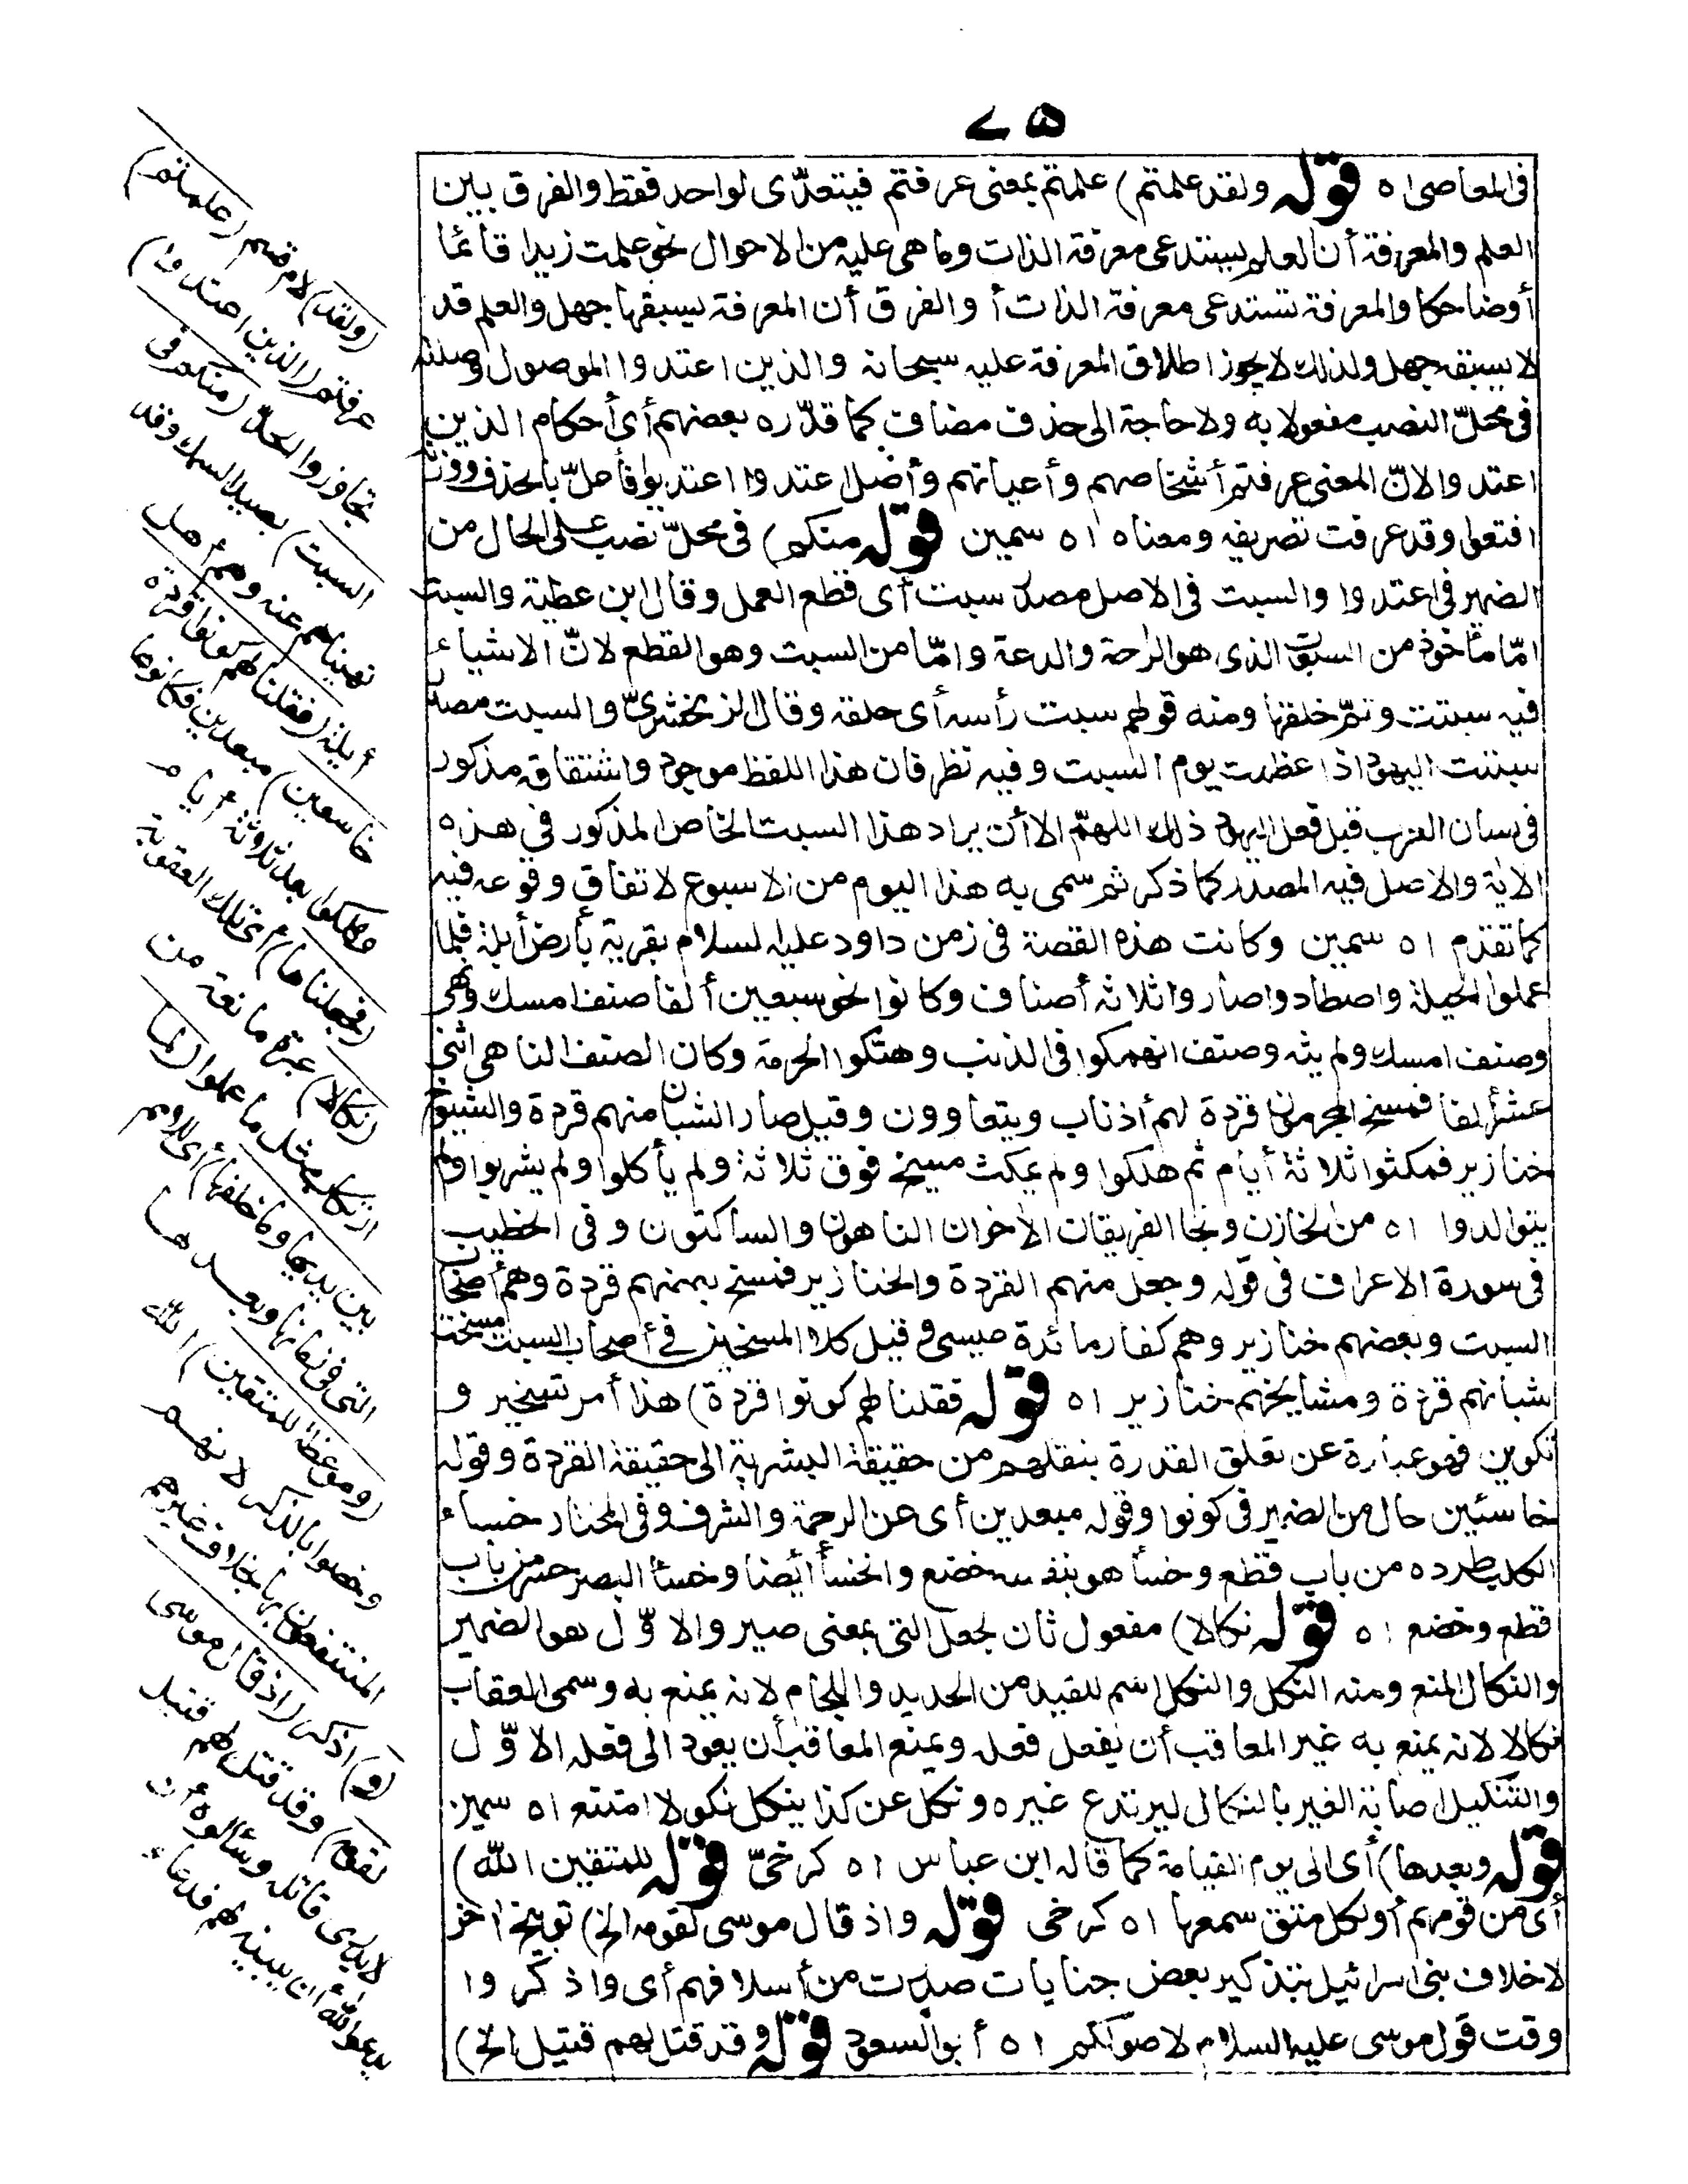 ٧٥
فى المعاصى اه قوله ولقد علمتم) علمتم بمعنى عرفتم فيتعدّى لواحد فقط والفرق بين
العلم والمعرفة أن العلم يستدعى معرفة الذات وما هى عليه من الاحوال نحو علمت زيدا قائما
أوضاحكا والمعرفة تستدعى معرفة الذات أو الفرق أن المعرفة يسبقها جهل والعلم قد
لا يسبقه جهل ولذلك لا يجوز اطلاق المعرفة عليه سبحانه والذين اعتدوا الموصول وصلته
فى محلّ النصب مفعولا به ولا حاجة الى حذف مضاف كما قدّره بعضهم أى أحكام الذين
اعتدوا لانّ المعنى عرفتم أشخاصهم وأعيانهم وأصل اعتدوا اعتديوا فأعلّ بالحذف ووزنه
افتعوا وقد عرفت تصريفه ومعناه اه سمين قوله منكم) فى محلّ نصب على الحال من
الضمير فى اعتدوا والسبت فى الاصل مصدر سبت أى قطع العمل وقال ابن عطية والسبت
امّا مأخوذ من السبوت الذى هو الراحة والدعة وامّا من السبت وهو القطع لانّ الاشياء
فيه سبتت وتمّ خلقها ومنه قولهم سبت رأسه أى حلقه وقال الزمخشرىّ والسبت مصدر
سبتت اليهود اذا عظمت يوم السبت وفيه نظر فان هذا اللفظ موجود واشتقاقه مذكور
فى لسان العرب قبل فعل اليهود ذلك اللهمّ الا أن يراد هذا السبت الخاص المذكور فى هذه
الاية والاصل فيه المصدر كما ذكر ثم سمى به هذا اليوم من الاسبوع لاتفاق وقوعه فيه
كما تقدّم اه سمين وكانت هذه القصة فى زمن داود عليه السلام بقرية بأرض أيلة فلما
عملوا الحيلة واصطادوا صاروا ثلاثة أصناف وكانوا نحو سبعين ألفا صنف امسك ونهى
وصنف امسك ولم ينه وصنف انهمكوا فى الذنب وهتكوا الحرمة وكان الصنف الناهى اثنى
عشر ألفا فمسخ المجرمون قردة لهم أذناب ويتعاوون وقيل صار الشبان منهم قردة والشيوخ
خنازير فمكثوا ثلاثة أيام ثم هلكوا ولم يمكث مسيخ فوق ثلاثة ولم يأكلوا ولم يشربوا ولم
يتوالدوا اه من الخازن ونجا الفريقان الاخران الناهون والساكتون وفى الخطيب
فى سورة الاعراف فى قوله وجعل منهم القردة والخنازير فمسخ بعضهم قردة وهم أصحاب
السبت وبعضهم خنازير وهم كفار مائدة عيسى وقيل كلا المسخين فى أصحاب السبت مسخت
شبانهم قردة ومشايخهم خنازير اه قوله فقلنا لهم كونوا قردة) هذا أمر تسخير و
تكوين فهو عبارة عن تعلق القدرة بنقلهم من حقيقة البشرية الى حقيقة القردة وقوله
خاسئين حال من الضمير فى كونوا وقوله مبعدين أى عن الرحمة والشرف وفى المختار خسأ
الكلب طرده من باب قطع وخسأ هو بنفسه خضع وانخسأ أيضا وخسأ البصر حسر من باب
قطع وخضع اه قوله نكالا) مفعول ثان لجعل التى بمعنى صير والاوّل هو الضمير
والنكال المنع ومنه النكل والنكل اسم للقيد من الحديد واللجام لانه يمنع به وسمى العقاب
نكالا لانه يمنع به غير المعاقب أن يفعل فعله ويمنع المعاقب أن يعود الى فعله الاوّل
والتنكيل اصابة الغير بالنكال ليرتدع غيره ونكل عن كذا ينكل نكولا امتنع اه سمين
قوله وبعدها) أى الى يوم القيامة كما قاله ابن عباس اه كرخىّ قوله للمتقين الله)
أى من قومهم أو لكل متق سمعها اه كرخى قوله واذ قال موسى لقومه الخ) توبيخ اخر
لاخلاف بنى اسرائيل بتذكير بعض جنايات صدرت من أسلافهم أى واذكروا
وقت قول موسى عليه السلام لاصولكم اه أبو السعود قوله وقد قتل لهم قتيل الخ)
(ولقد) لام قسم (علمتم)
عرفتم (الذين اعتدوا)
تجاوزوا الحدّ (منكم فى
السبت) بصيد السمك وقد
نهيناهم عنه وهم أهل
أيلة (فقلنا لهم كونوا قردة
خاسئين) مبعدين فكانوها
وهلكوا بعد ثلاثة أيام
(فجعلناها) أى تلك العقوبة
(نكالا) عبرة مانعة من
ارتكاب مثل ما عملوا (لما
بين يديها وما خلفها) أى للامم
التى فى زمانها وبعدها
(وموعظة للمتقين) الله
وخصوا بالذكر لانهم
المنتفعون بها بخلاف غيرهم
(و) اذكر (اذ قال موسى
لقومه) وقد قتل لهم قتيل
لا يدرى قاتله وسألوه أن
يدعو الله أن يبينه لهم فدعاه